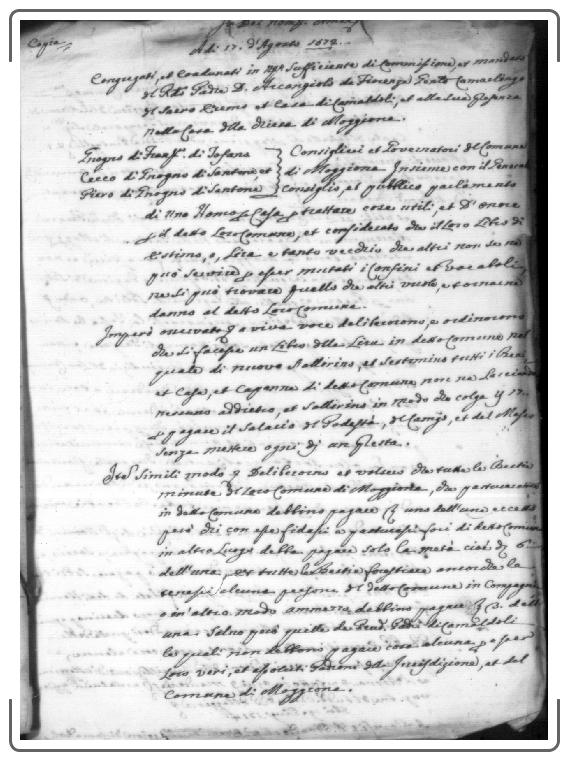 Copia
Adi 17. d'Agosto 1672.
Congregati, et Coadunati in num. sufficiente di Commissione, et mandato
del P. Pedre D. Arcangiolo da Fiorenza Camarlengo
del Sacro Eremo et Casa di Camaldoli, et alla sua presenza
nella Casa della Chiesa di Moggiona.
Gnogno di Franc. di Tofano
Cecco di Gnogno di Santone et
Piero di Gnogno di Santone
Consiglieri et Governatori del Comune
di Moggiona Insieme con il General
Consiglio, et publico parlamento
di uno Homo p Casa p trattare cose utili, et d'onore
p il detto Loro Comune, et considerato che il Loro Libro di
Estimo, o, Lira e tanto vecchio che altri non se ne
può servire p esser mutati i Confini et vocaboli,
ne si può trovare quello che altri vuole, et tornare
danno al detto Loro Comune.
Imperò a viva voce deliberorono, e ordinorono
che si facesse un Libro della Lira in detto Comune nel
quale di nuovo Allirino, et Settimino tutti i Beni
et Case, et Capanne di detto Comune non ne Lasciando
nessuno addietro, et Sallirino in modo che
p pagare il Salario del Podestà, del Camp., et del Messo
senza mettere ogni dì un Presta.
Item Simili modo Deliberorno et volsero che tutte le Bestie
minute del Loro Comune di Moggiona, che pastureranno
in detto Comune debbino pagare uno dell'una eccetto
però chi con esse fidassi e pasturassi fori di detto Comune
in altro Luogo debba pagare solo la metà cioè d. 6
dell'una, et tutte le Bestie forestiere ancorche le
tenessi alcuna persona del detto Comune in Compagnia
o in altro modo ammezzo debbino pagare 3. dell'
una: Salvo però quelle de Rend. Padri di Camaldoli
le quali non debbono pagare cosa alcuna p esser
Loro veri, et assoluti Padroni della Jurisdizione, et del
Comune di Moggiona.